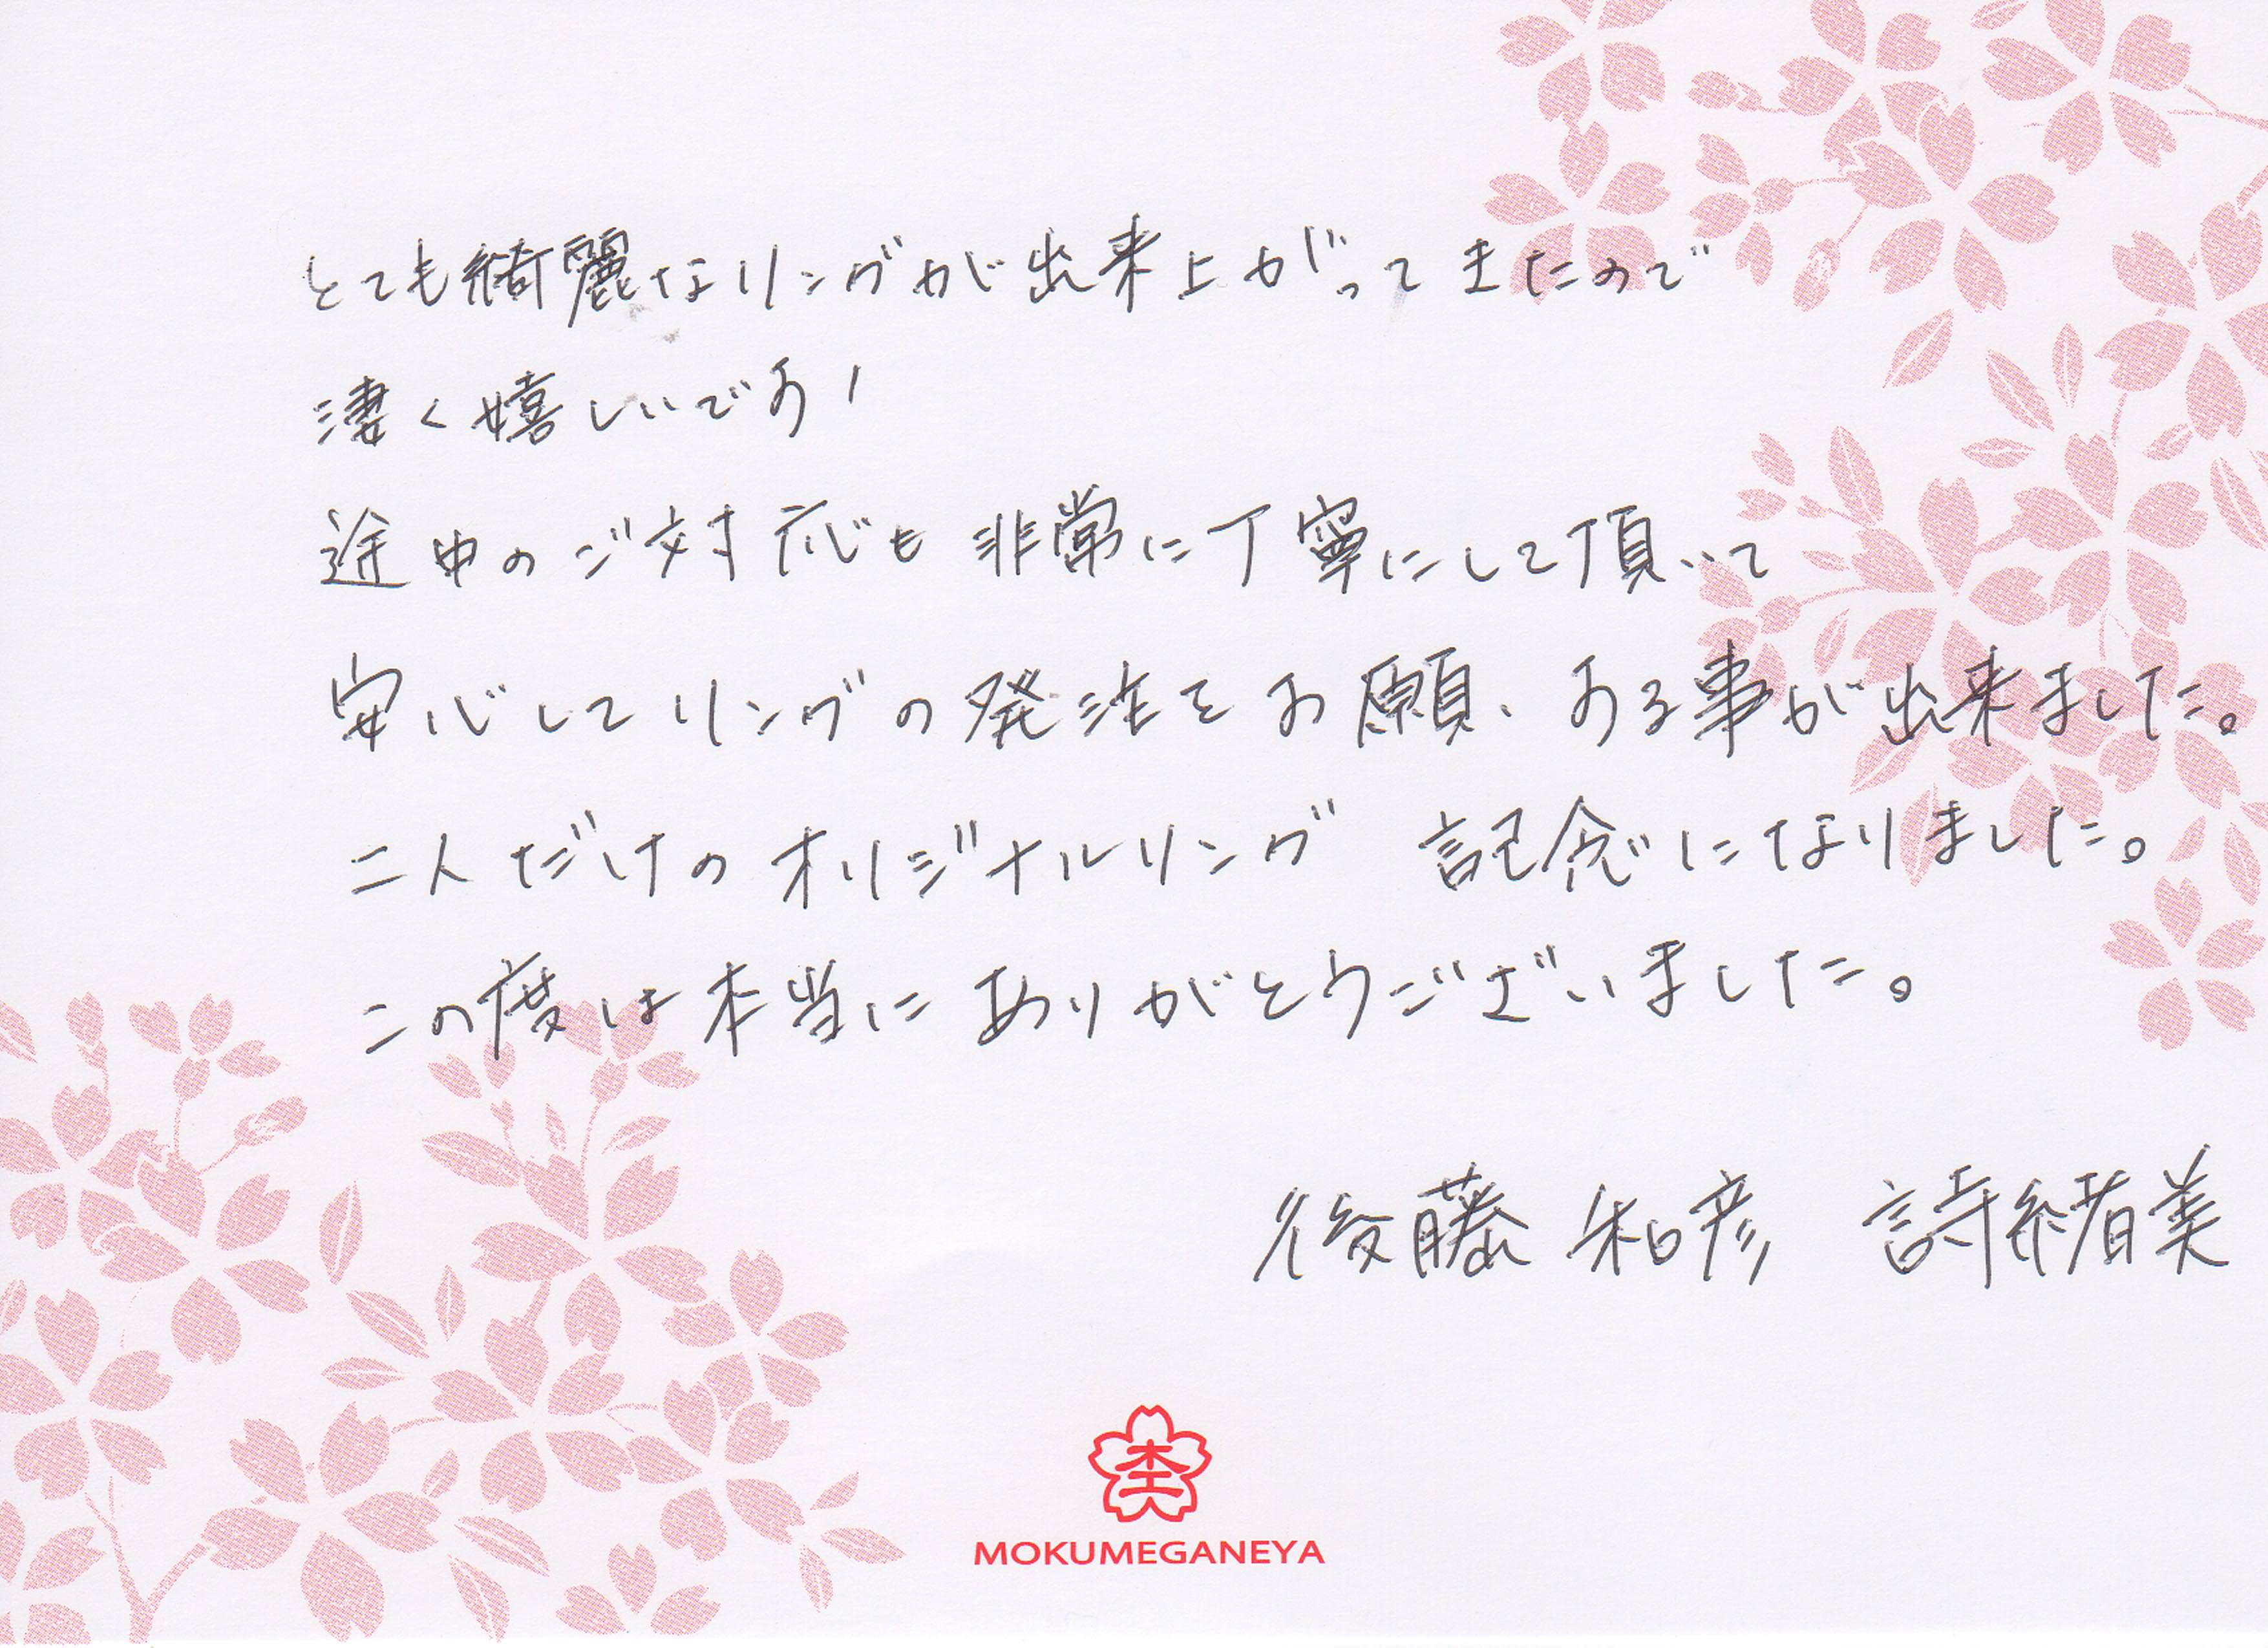 とても綺麗なリングが出来上がってきたので
凄く嬉しいです!
途中のご対応も非常に丁寧にして頂いて
安心してリングの発注をお願いする事が出来ました。
二人だけのオリジナルリング 記念になりました。
この度は本当にありがとうございました。
後藤 和彦 詩緒美
杢
MOKUMEGANEYA